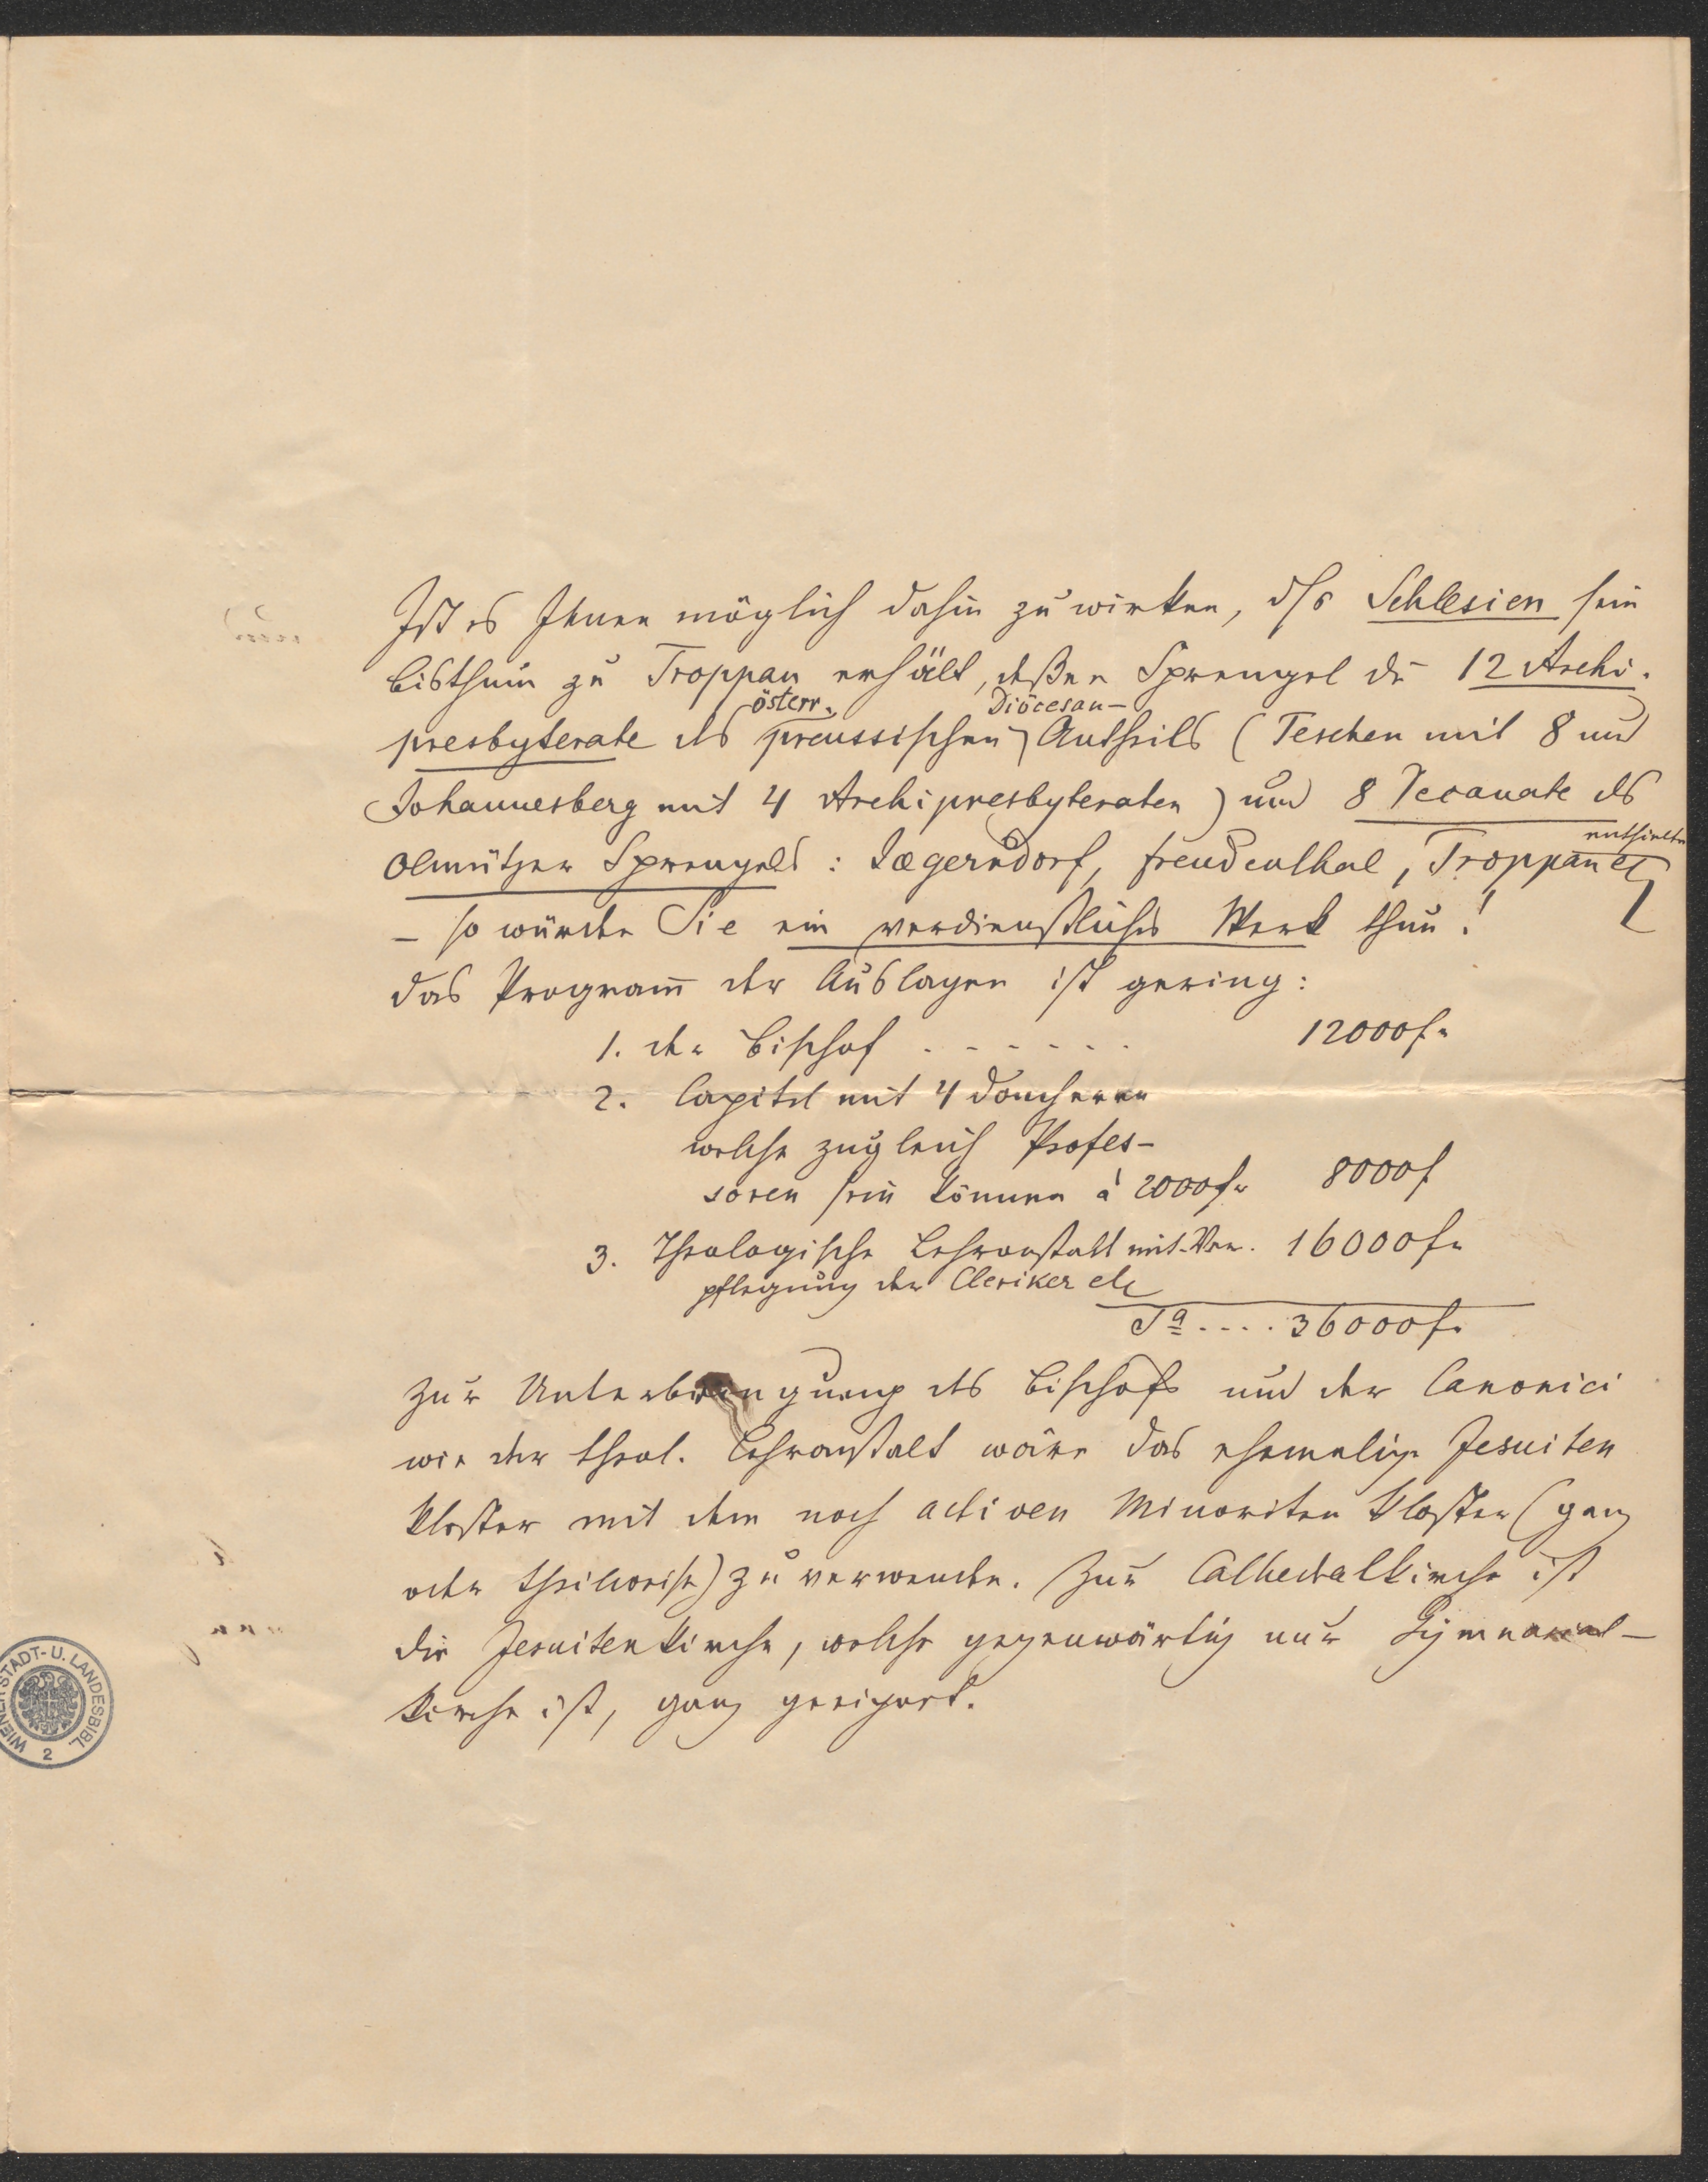 Ist es Ihnen möglich dahin zu wirken, dß Schlesien sein
Bisthum zu Troppau erhält, deßen Sprengel die 12 Archi-
österr. Diöcesan-
presbyterate des preussischen Antheils (Teschen mit 8 und
Johannesberg mit 4 Archipresbyteraten) und 8 Decanate des
enthielte
Olmützer Sprengels: Jægerndorf, Freudenthal, Troppau etc
– so würden Sie ein verdienstliches Werk thun!
Das Program̄ der Auslagen ist gering:
1. der Bischof . - - - - - . 12000 f.
2. Capitel mit 4 Domherren
welche zugleich Profes-
soren sein können à 2000 f. 8000 f
3. Theologische Lehranstalt mit Ver- 16000 f.
pflegung der Cleriker etc
Sa .... 36000 f.
Zur Unterbringung des Bischofs und der Canonici
wie der theol. Lehranstalt wäre das ehemalige Jesuiten
Kloster mit dem noch activen Minoriten Kloster (ganz
oder theilweise) zu verwenden. Zur Cathedralkirche ist
die Jesuitenkirche, welche gegenwärtig nur Gymnasial-
kirche ist, ganz geeignet.
WIENER STADT- U. LANDESBIBL.
2